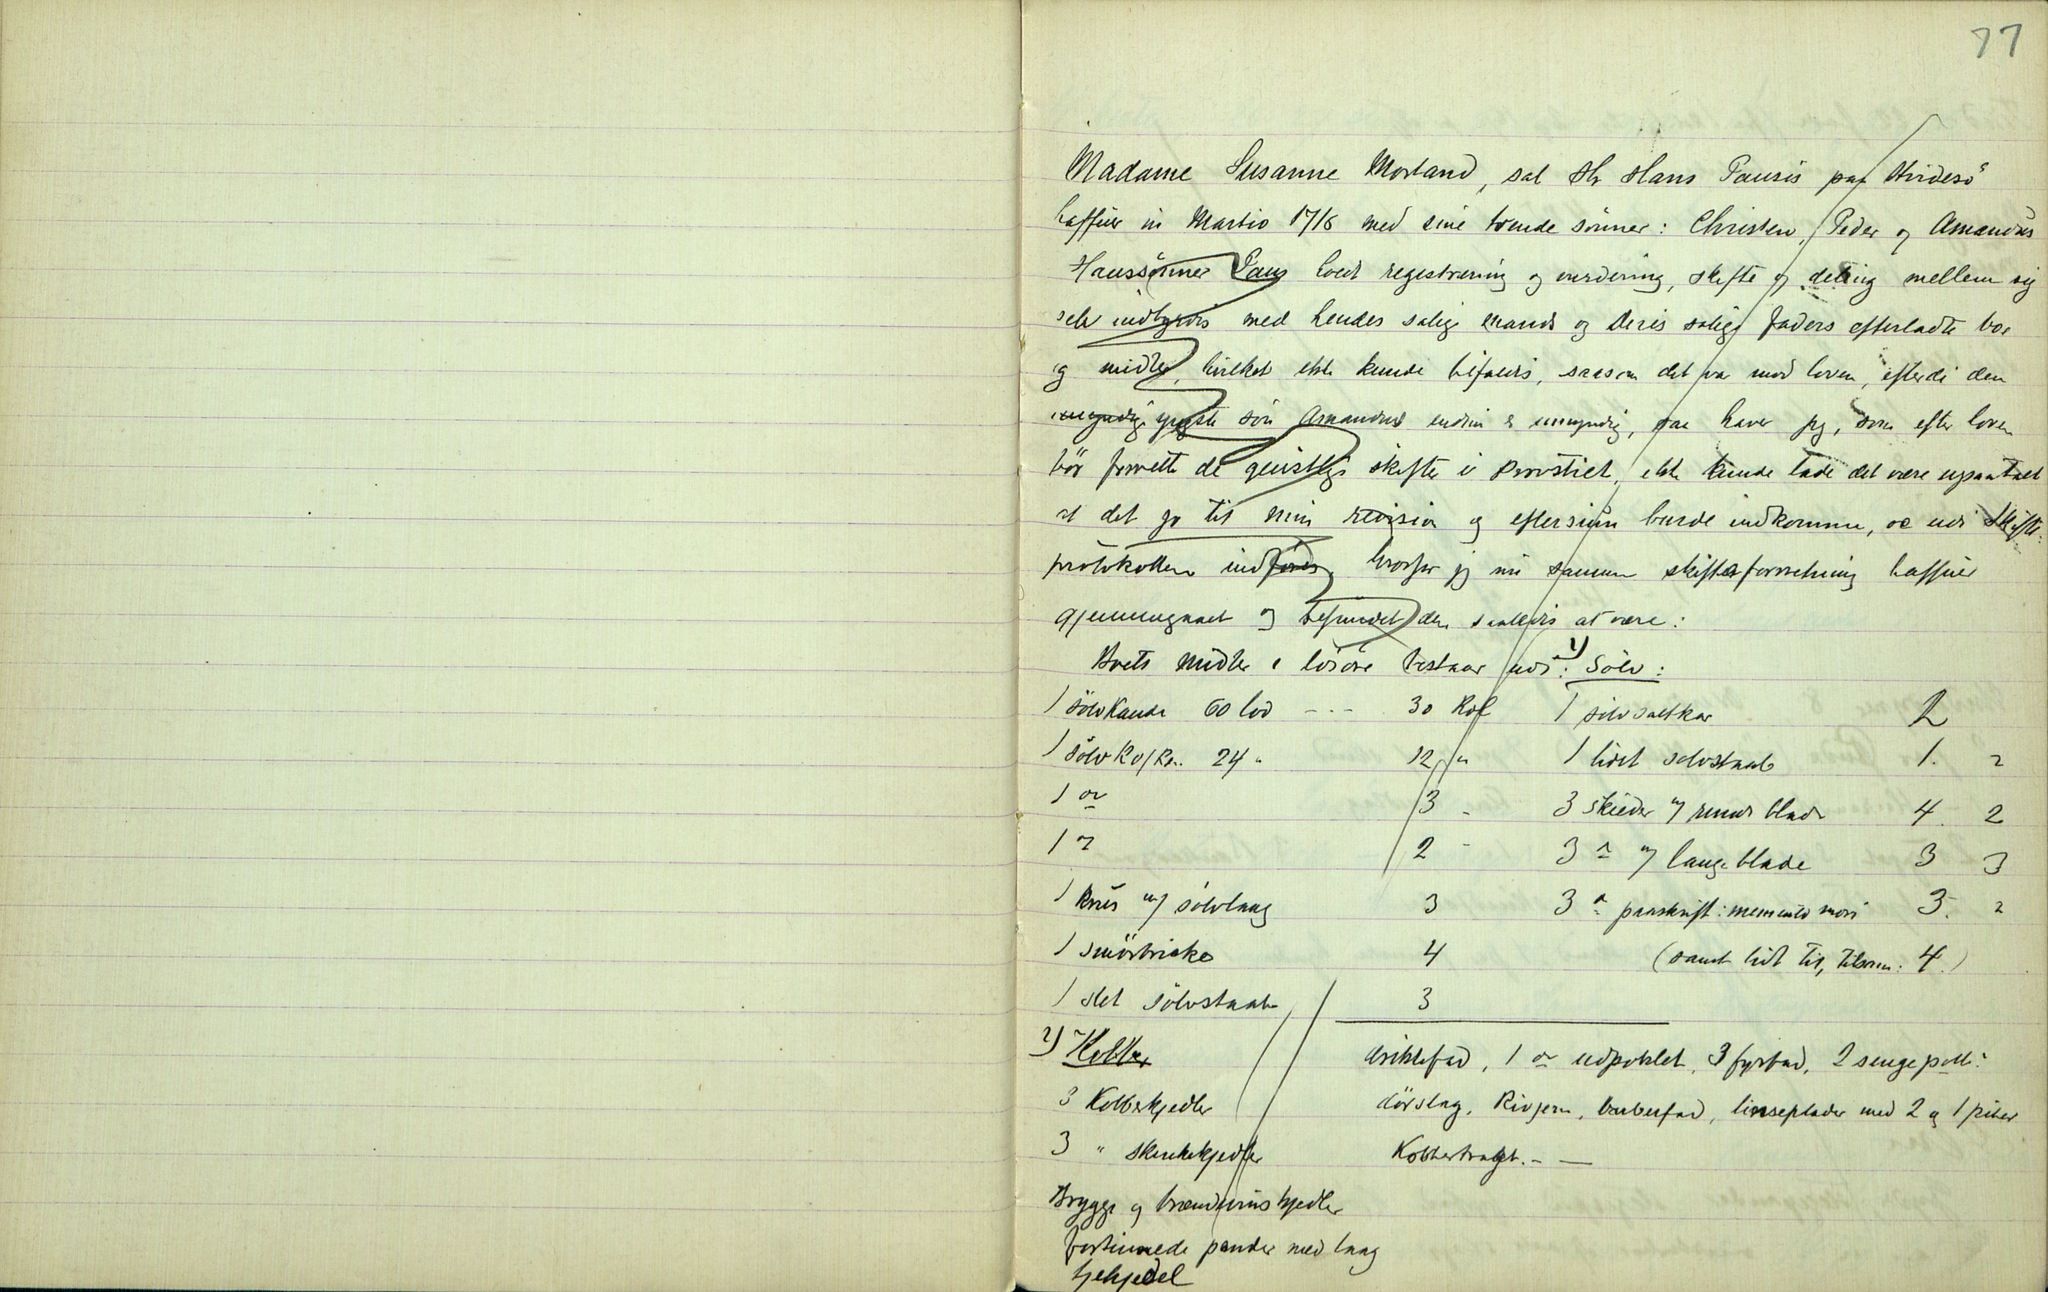 77
Madame Susanne Morland, sal Hr Hans Pausis paa Hvidesö
haffuer in Martio 1716 med sine trende sönner: Christen, Peder og Amandus
Hanssönner Paus loedt registrering og vurdering, skifte og deling mellem sig
selv indbyrdis med hendes salige mands og deris salige faders efterladte boe
og midler, hvilket ikke kunde bifaldis, saasom det var mod loven, efterdi den
umyndige yngste sön Amandus endnu er umyndig, saa haver jeg, som efter loven
bör forrette de geistlige skifter i Provstiet, ikke kunde lade det være upaatalt
at det jo til min revision og eftersiun burde indkomme, oc udi Skifte-
protokollen indföres, hvorfor jeg nu samme skifteforretning haffuer
gjennemgaaet og befundet den saaledis at være:
Boets midler i lösöre bestaar udi: 1) Sölv:
1 sölvkande 60 lod --- 30 Rdl 1 sölvsaltkar 2
1 sölv 24 " 12 " 1 lidet sölvstaab 1. 2
1 do 3 - 3 skieder m/ rund blade 4. 2
1 do 2 - 3 do m/ lange blade 3 3
1 krus m/ sölvlaag 3 3 do paaskrift: memento mori 3. 2
1 smörbrikke 4 (samt lidt til, tilsam: 4.)
1 slet sölvstaab 3
2) Kobber fad, 1 do udpoklet, 3 fyrfad, 2 sengepotte:
3 Kobberkjedler dörslag, Rivjern, barberfad, linseplader med 2 og 1 piber
3 " skenkekjedler Kobbertragt. - —
Brygge og brændevins kjedler
fortinnede pander med laag
tjekjedel